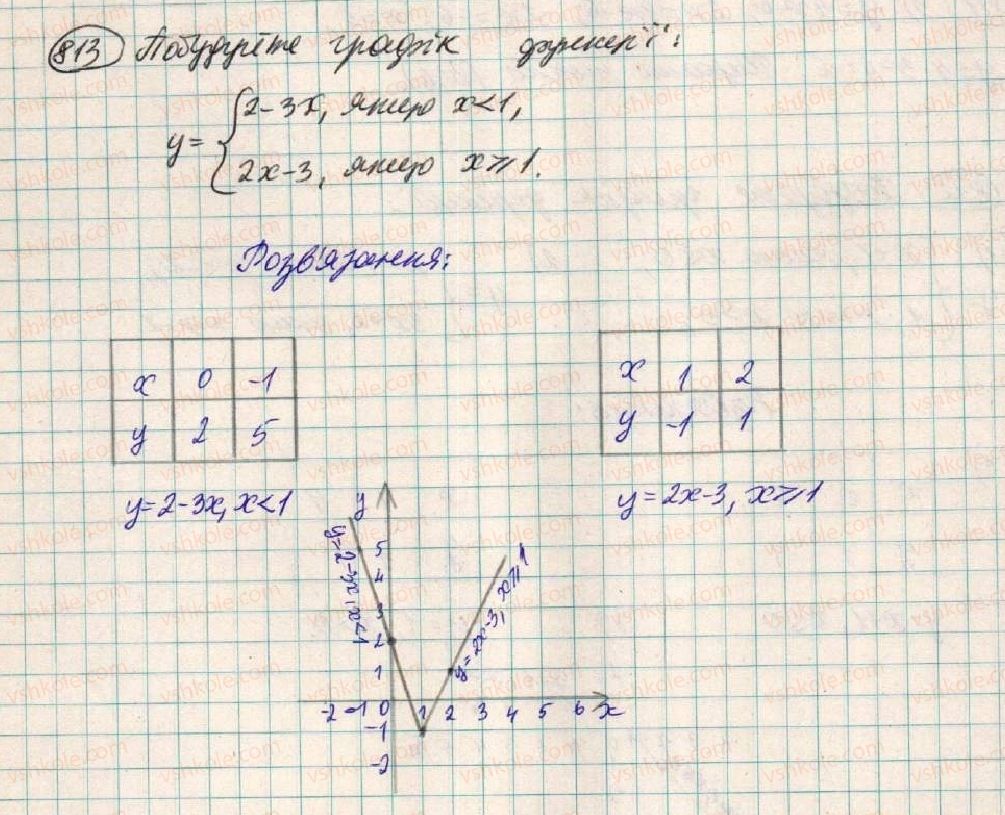 813 Побудуйте графік функції:
y= {2-3x, якщо x<1,
2x-3, якщо x⩾1.
Розв'язання:
x 0 -1
y 2 5
y=2-3x, x<1
x 1 2
y -1 1
y=2x-3, x⩾1
y
5
4
3
2
1
-2 -1 0 1 2 3 4 5 6 x
-1
-2
y=2-3x, x<1
y=2x-3, x⩾1
vshkole.com